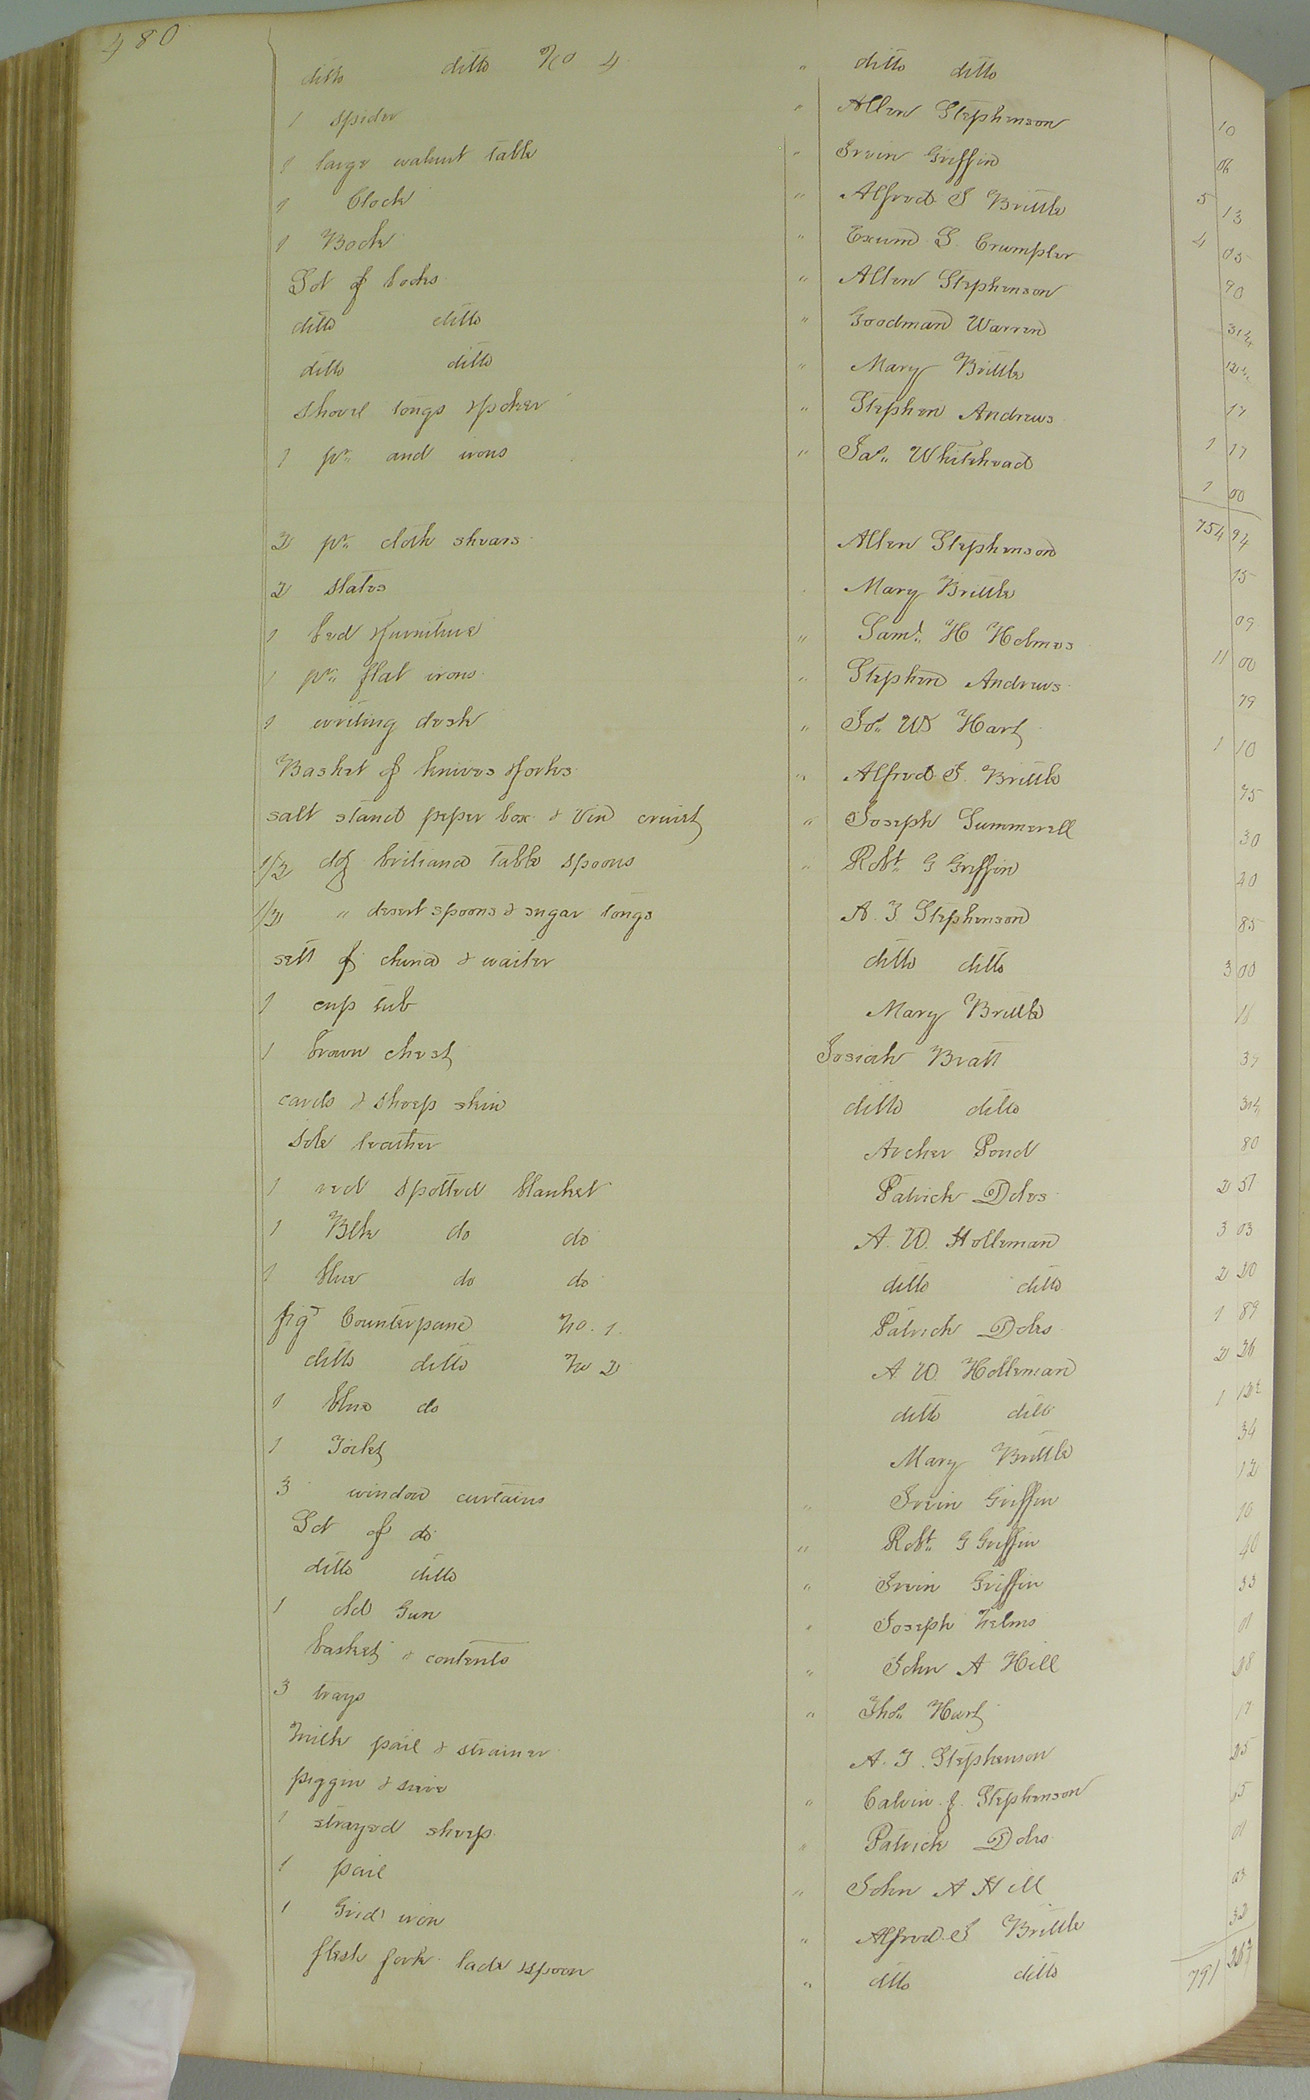 480
ditto ditto No 4 " ditto ditto 10
1 spider " Allen Stephenson 06
1 large walnut table " Irvin Griffin 5 13
1 Clock " Alfred S Brittle 4 05
1 Book " Exum S. Crumpler 90
Set of books " Allen Stephenson 31¼
ditto ditto " Goodman Warren 12½
ditto ditto " Mary Brittle 17
Shovel tongs & poker " Stephen Andrews 1 17
1 pr. and irons " Jas. Whitehead 1 00
754 94
2 pr. cloth shears Allen Stephenson 15
2 slates Mary Brittle 09
1 bed & furniture " Saml. H Holmes 11 00
1 pr. flat irons " Stephen Andrews 79
1 writing desk " Jos. W Hart 1 10
Basket of knives & forks " Alfred S. Brittle 75
salt stand peper box & Vin cruist " Joseph Summerell 30
1/2 doz britiana table spoons " Robt. G Griffin 20
1/2 " desert spoons & sugar tongs A. J Stephenson 85
sett of china & waiter ditto ditto 3 00
1 cup tub Mary Brittle 11
1 brown chest Josiah Bratt
cards & sheep skin ditto ditto
Sole leather Archer Pond 80
1 red spotted blanket Patrick Doles 2 51
1 Blk do do A. W. Holleman 3 03
1 blue do do ditto ditto 2 20
figd Counterpane No. 1. Patrick Doles 1 89
ditto ditto No 2 A. W. Holleman 2 26
1 blue do ditto ditto 1 12½
1 Toilet Mary Brittle 34
3 window curtains " Irvin Griffin 12
Set of do " Robt. G Griffin 10
ditto ditto " Irvin Griffin 40
1 old Gun " Joseph Helms 33
basket & contents " John A Hill 01
3 trays " Thos. Hart 18
Milk pail & strainer A. J. Stephenson 17
piggin & sieve " Calvin J. Stephenson 25
1 strayed sheep " Patrick Doles
1 pail " John A Hill 01
1 Grid iron " Alfred S Brittle 03
flesh fork lade spoon " ditto ditto 32
791